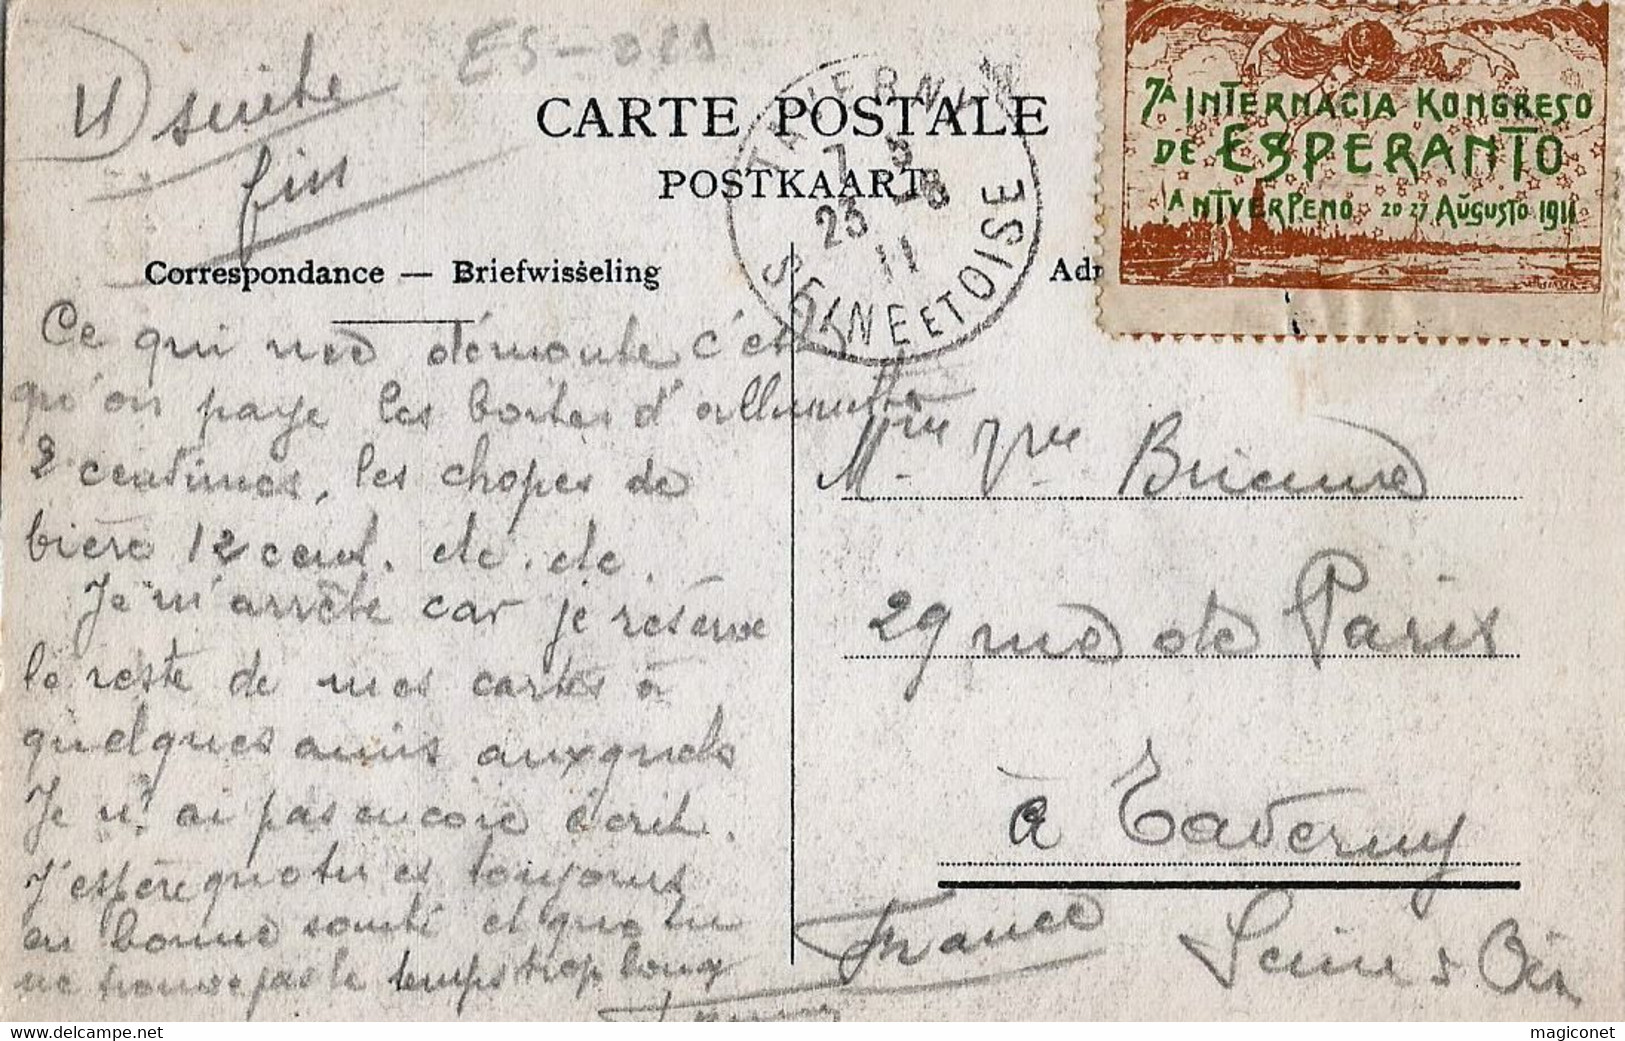 4) suite
fin
ES-021
CARTE POSTALE
POSTKAART
TAVERNY
7 5
23 - 8
11
SEINE ET OISE
7A INTERNACIA KONGRESO
DE ESPERANTO
ANTVERPENO 20-27 AŬGUSTO 1911
Correspondance — Briefwisseling
Ad
Ce qui me démonte c'est
qu'on paye les boites d'allumettes
2 centimes, les chopes de
bière 12 cent. etc. etc.
Je m'arrête car je réserve
le reste de mes cartes à
quelques amis auxquels
Je n'ai pas encore écrit.
J'espère que tu es toujours
en bonne santé et que tu
ne trouve pas le temps trop long
Mme Vve Brienne
29 rue de Paris
à Taverny
Seine & Oise
France
magiconet